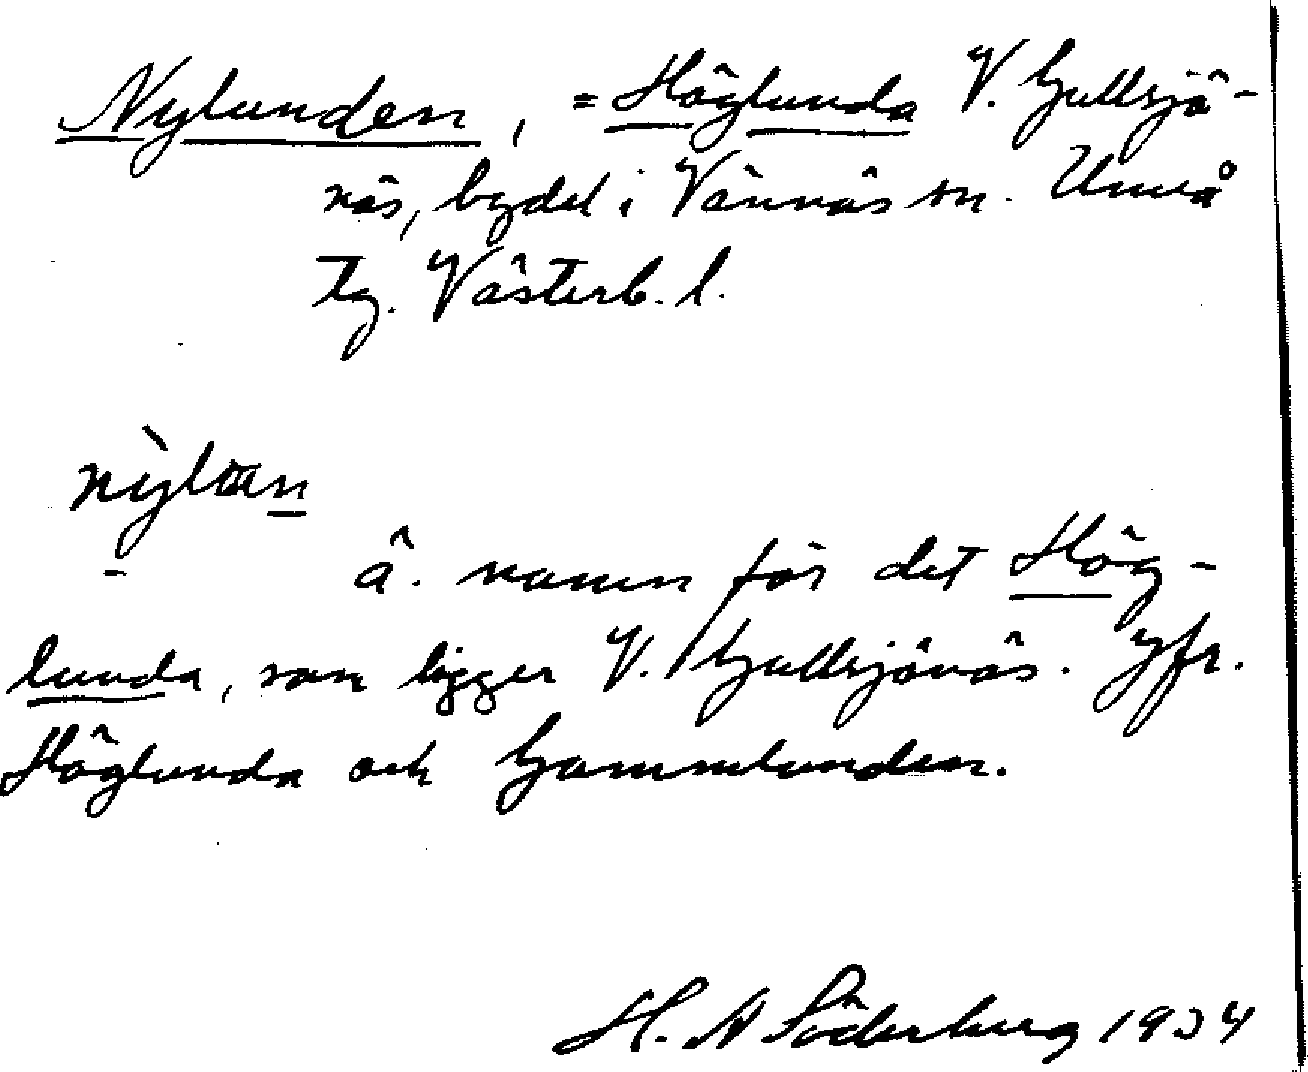 Nylunden, = Höglunda V. Gullsjö-
näs, bydel i Vännäs sn. Umeå
tg. Västerb. l.
ä. namn för det Hög-
lunda, som ligger V. Gullsjönäs. Jfr.
Höglunda och Gammlunden.
H. A Söderberg 1934